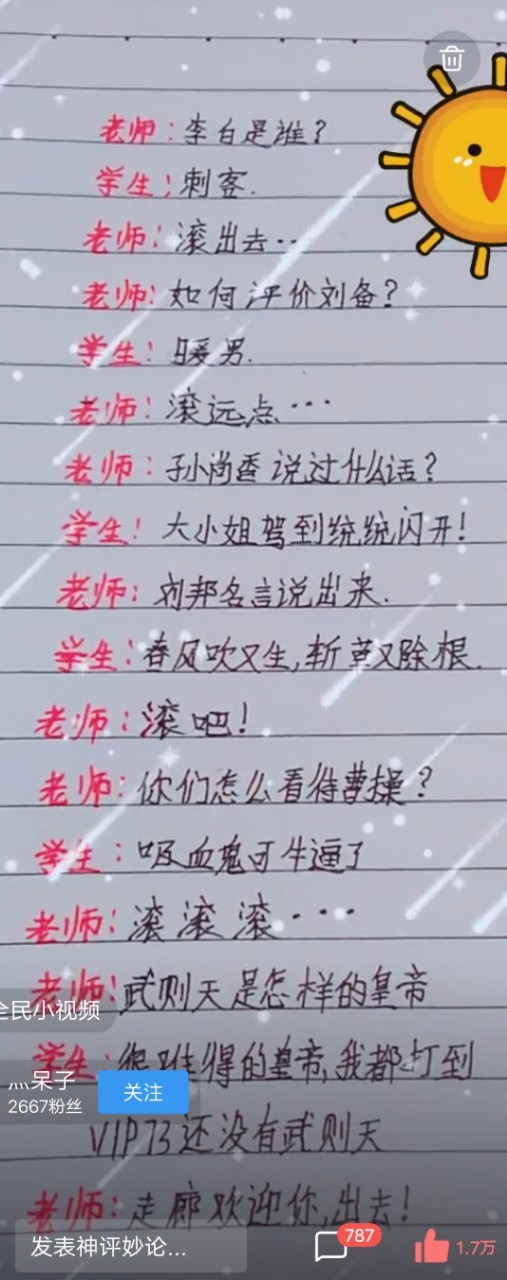 老师：李白是谁？
学生：刺客.
老师：滚出去··
老师：如何评价刘备？
学生：暖男.
老师：滚远点···
老师：孙尚香说过什么话？
学生！大小姐驾到统统闪开！
老师：刘邦名言说出来.
学生：春风吹又生,斩草又除根.
老师：滚吧！
老师：你们怎么看待曹操？
学生：吸血鬼可牛逼了
老师：滚滚滚···
老师：武则天是怎样的皇帝
全民小视频
学生：很难得的皇帝,我都打到
灬呆子
2667粉丝
关注
VIP73还没有武则天
老师：走廊欢迎你,出去！
发表神评妙论...
787
1.7万